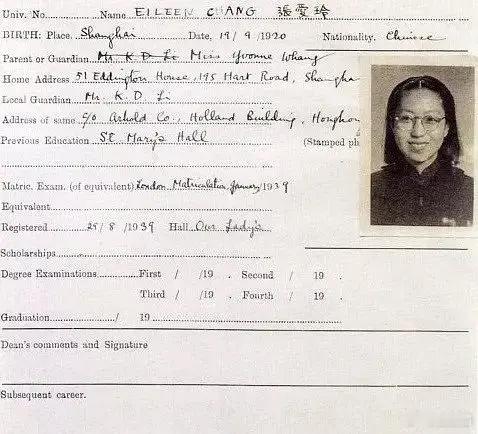 Univ. No. Name EILEEN CHANG 張愛玲
BIRTH: Place. Shanghai Date, 19/9/1920 Nationality. Chinese
Parent or Guardian Mr K D Li Miss Yvonne Whang
Home Address 51 Eddington House, 195 Hart Road, Shangha
Local Guardian Mr. K D Li
Address of same c/o Arnhold Co., Holland Building, Hongkon
Previous Education St. Mary's Hall
(Stamped ph
Matric. Exam. (of equivalent) London Matriculation January/1939
Equivalent
Registered 29/8/1939 Hall Our Lady's
Scholarships
Degree Examinations First / /19 . Second / 19 .
Third / /19 . Fourth / 19 .
Graduation / 19
Dean's comments and Signature
Subsequent career.